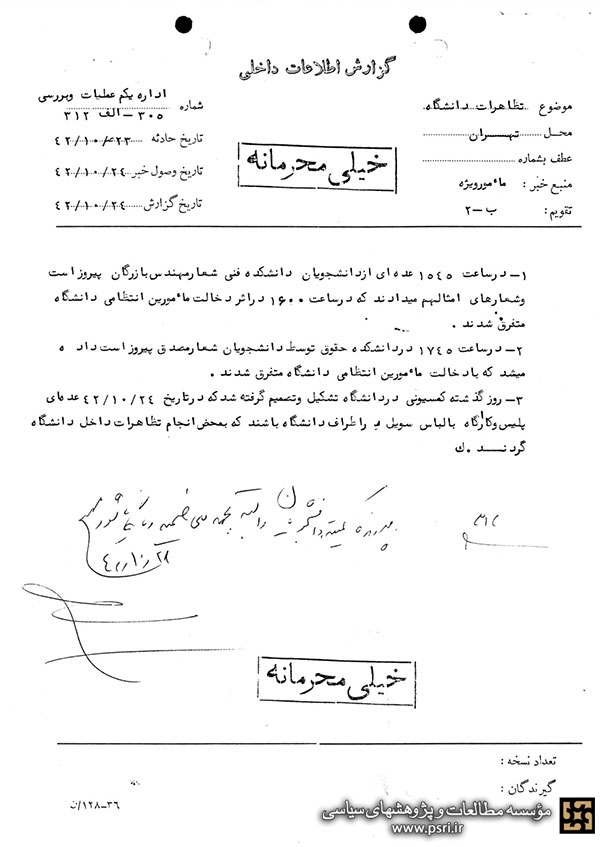 گزارش اطلاعات داخلی
موضوع تظاهرات دانشگاه
محل تهران
عطف بشماره
منبع خبر : مأمورویژه
تقویم : ب-۲
خیلی محرمانه
اداره یکم عملیات وبررسی
شماره ۳۰۵-الف ۳۱۲
تاریخ حادثه ۴۲/۱۰/۲۳
تاریخ وصول خبر ۴۲/۱۰/۲۴
تاریخ گزارش ۴۲/۱۰/۲۴
۱- درساعت ۱۵۴۵ عده ای ازدانشجویان دانشکده فنی شعارمهندس بازرگان پیروز است
وشعارهای امثالهم میدادند که درساعت ۱۶۰۰ دراثر دخالت مأمورین انتظامی دانشگاه
متفرق شدند .
۲- درساعت ۱۷۴۵ دردانشکده حقوق توسط دانشجویان شعارمصدق پیروز است داد ه
میشد که بادخالت مأمورین انتظامی دانشگاه متفرق شدند .
۳- روز گذشته کمسیونی دردانشگاه تشکیل وتصمیم گرفته شدکه درتاریخ ۴۲/۱۰/۲۴ عده‌ای
پلیس وکارآگاه بالباس سویل در اطراف دانشگاه باشند که بمحض انجام تظاهرات داخل دانشگاه
گردنــد . ك
خیلی محرمانه
تعداد نسخه :
گیرندگان :
۳۶-۱۲۸/ن
مؤسسه مطالعات و پژوهشهای سیاسی
www.psri.ir